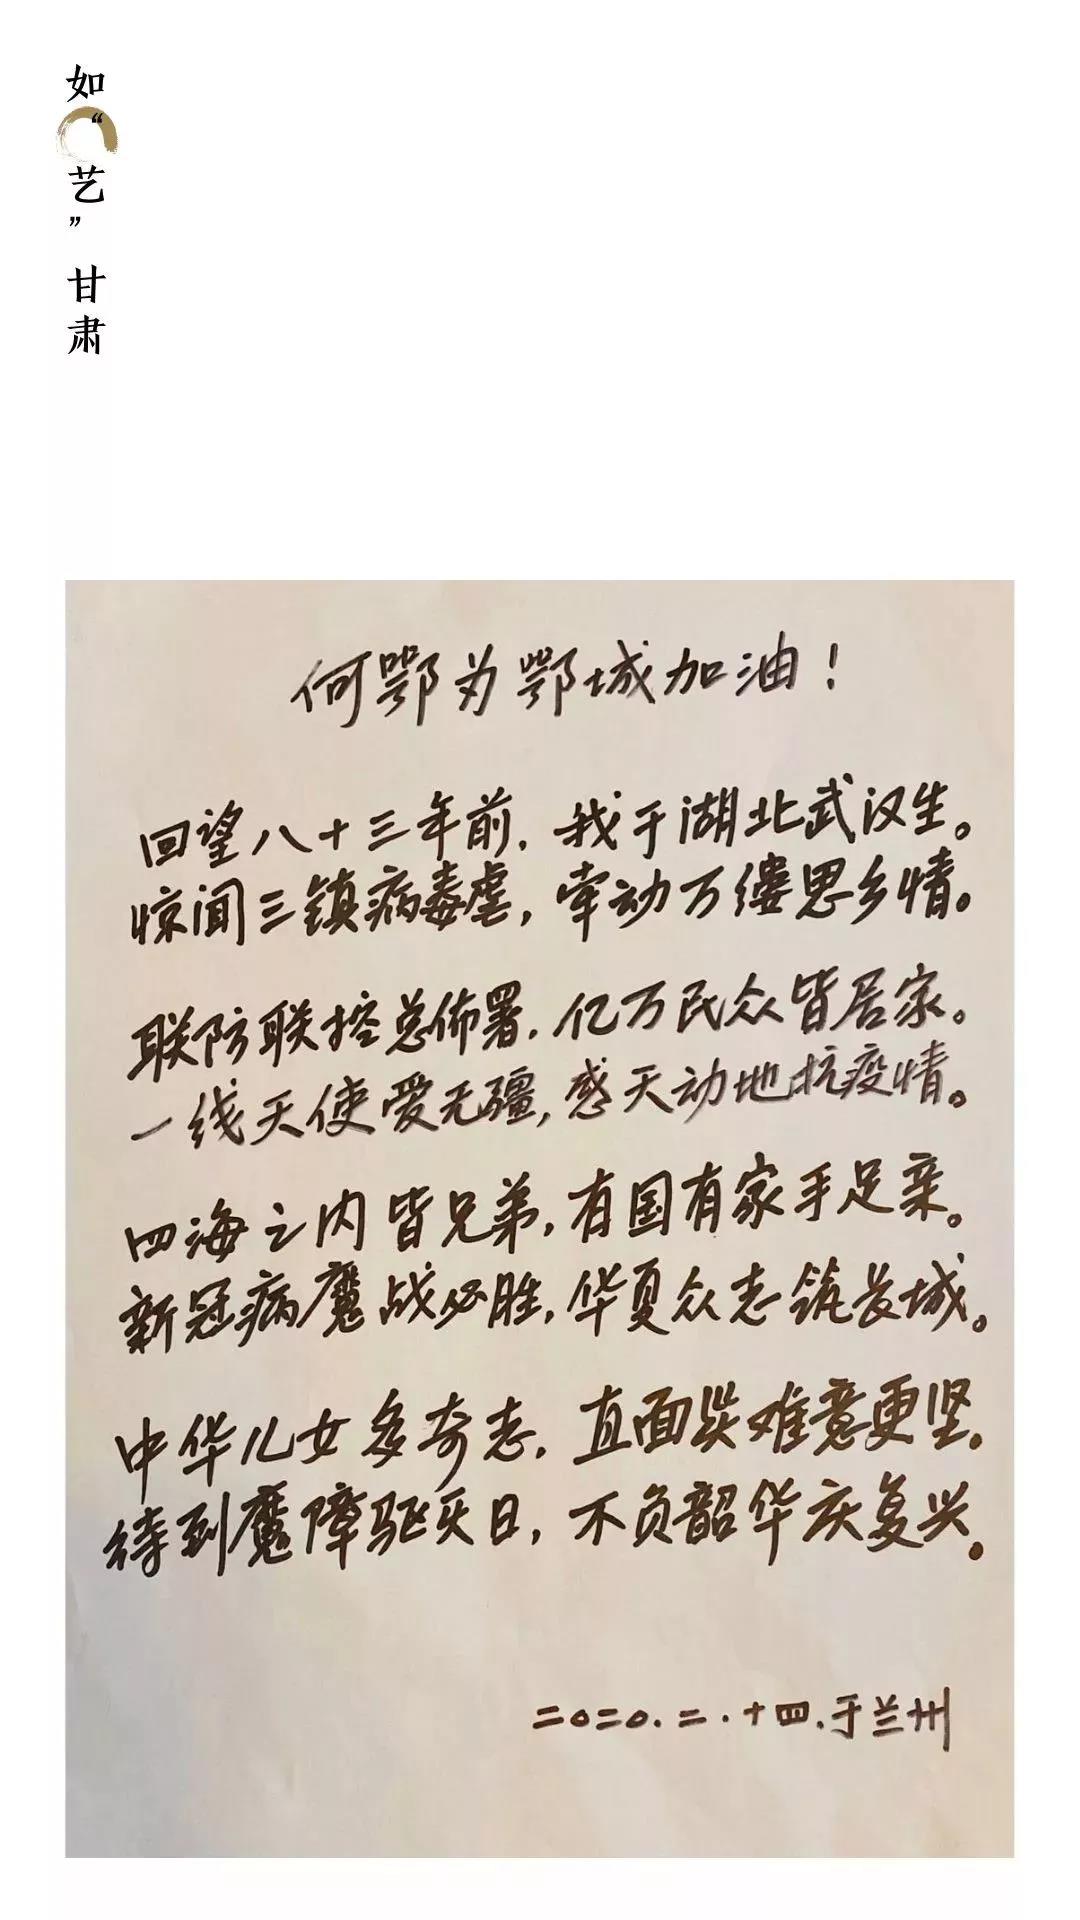 如“艺”甘肃
何鄂为鄂城加油！
回望八十三年前，我于湖北武汉生。
惊闻三镇病毒虐，牵动万缕思乡情。
联防联控总佈署，亿万民众皆居家。
一线天使爱无疆，感天动地抗疫情。
四海之内皆兄弟，有国有家手足亲。
新冠病魔战必胜，华夏众志筑长城。
中华儿女多奇志，直面灾难意更坚。
待到魔障驱灭日，不负韶华庆复兴。
二〇二〇.二.十四.于兰州